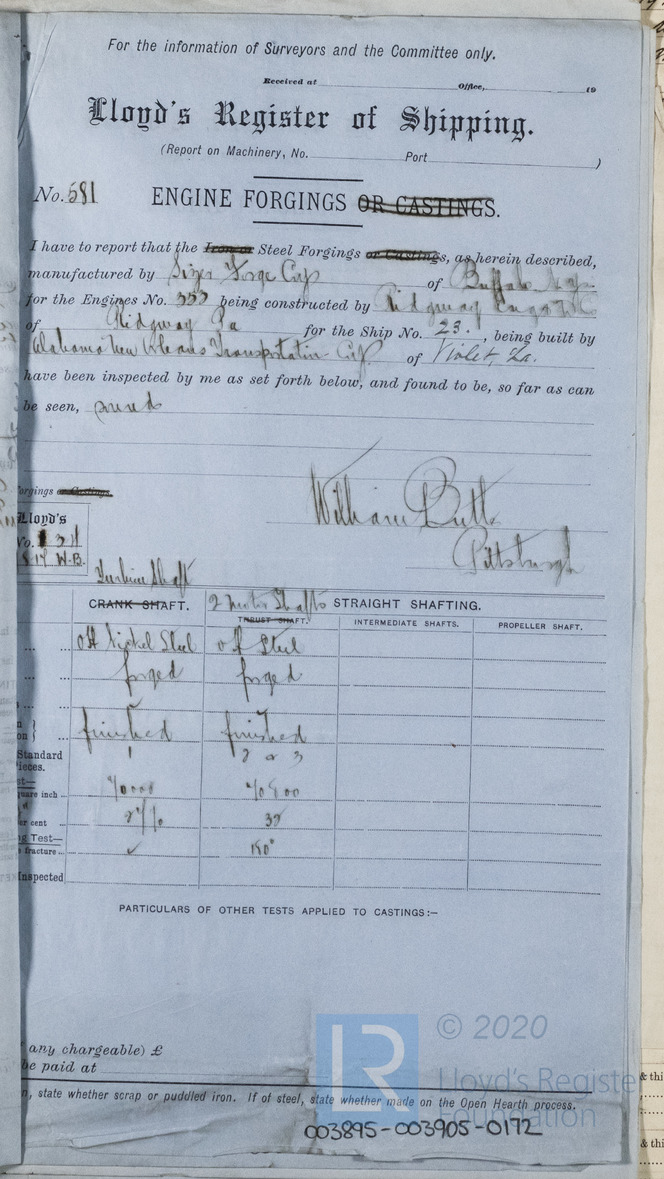 For the information of Surveyors and the Committee only.
Received at Office, 19
Lloyd's Register of Shipping.
(Report on Machinery, No. Port )
No. 581 ENGINE FORGINGS OR CASTINGS.
I have to report that the Iron or Steel Forgings or Castings, as herein described,
manufactured by Sizer Forge Corp of Buffalo N.Y.
for the Engines No. being constructed by Ridgway
of Ridgway Pa for the Ship No. 23. , being built by
Alabama New Orleans Transportation Corp of Violet, La.
have been inspected by me as set forth below, and found to be, so far as can
be seen, sound
orgings or Castings.
William Butts
Lloyd's
No.
W.B.
Pittsburgh
Turbine Shaft
CRANK SHAFT. 2 Shafts STRAIGHT SHAFTING.
THRUST SHAFT. INTERMEDIATE SHAFTS. PROPELLER SHAFT.
OH Nickel Steel OH Steel
forged forged
on }
finished finished
Standard 1 2 & 3
ieces.
st—
quare inch
er cent
g Test—
fracture ✓ 180°
Inspected
PARTICULARS OF OTHER TESTS APPLIED TO CASTINGS:—
any chargeable) £
be paid at
n, state whether scrap or puddled iron. If of steel, state whether made on the Open Hearth process.
LR © 2020
Lloyd's Registe
Foundation
003895-003905-0172
& thi
& thi